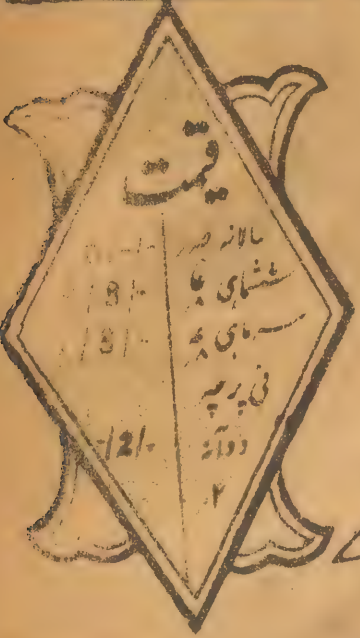 قیمت
سالانہ
ششماہی -/8/-
سہ ماہی -/5/-
فی پرچہ
دو آنہ -/2/-
۲